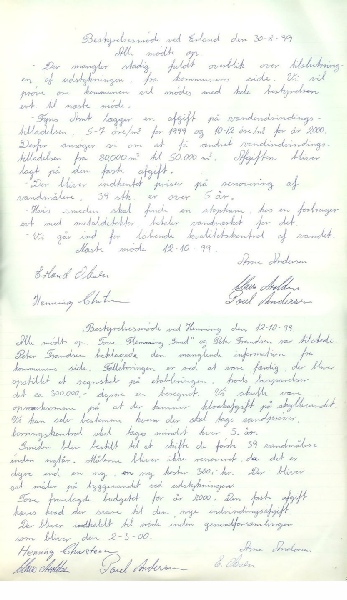 Bestyrelsesmøde ved Erland den 30-8-99
Alle mødte op.
- Der mangler stadig fuldt overblik over tilslutning-
en af udstykningen fra kommunens side. Vi vil
prøve om kommunen vil mødes med hele bestyrelsen
evt til næste møde.
- Fyns Amt lægger en afgift på vandindvindings-
tilladelsen. 5-7 øre/m³ for 1999 og 10-12 øre/m³ for år 2000.
Derfor ansøger vi om at få ændret vandindvindings-
tilladelsen fra 80.000 m³ til 50.000 m³. Afgiften bliver
lagt på den faste afgift.
- Der bliver indhentet priser på renovering af
vandmålere. 34 stk er over 5 år.
- Hvis smeden skal finde en stophane hos en forbruger
evt med metaldetektor betaler vandværket for det.
- Vi går ind for løbende kvalitetskontrol af vandet.
Næste møde 12-10-99.
Arne Andersen
Erland Olsen
Henning Christensen
Poul Andersen
Bestyrelsesmøde ved Henning den 12-10-99
Alle mødt op. Tom Flemming Lund og Peter Frandsen var tilstede
Peter Frandsen beklagede den manglende information fra
kommunens side. Tilslutningen er ved at være færdig, der bliver
opstillet et regnskab på etableringen.
det ca 300.000,- degne en beregnet. Vi skulle være
opmærksomme på at der kommer
Vi kan selv bestemme hvem der skal tage vandprøver.
boringskontrol skal tages mindst hver 5. år.
Smeden blev bestilt til at skifte de første 34 vandmålere
inden nytår. Målerne bliver ikke renoveret da det er
dyre end en ny, en ny koster 300,- kr. Der bliver
sat måler på byggevand ved udstykningen
Tom fremlagde budgettet for år 2000. Den faste afgift
hæves med der svare til den nye indvindingsafgift
Der bliver indkaldt til møde inden generalforsamlingen
som bliver den 2-3-00.
Henning Christensen
Arne Andersen
Poul Andersen
E. Olsen